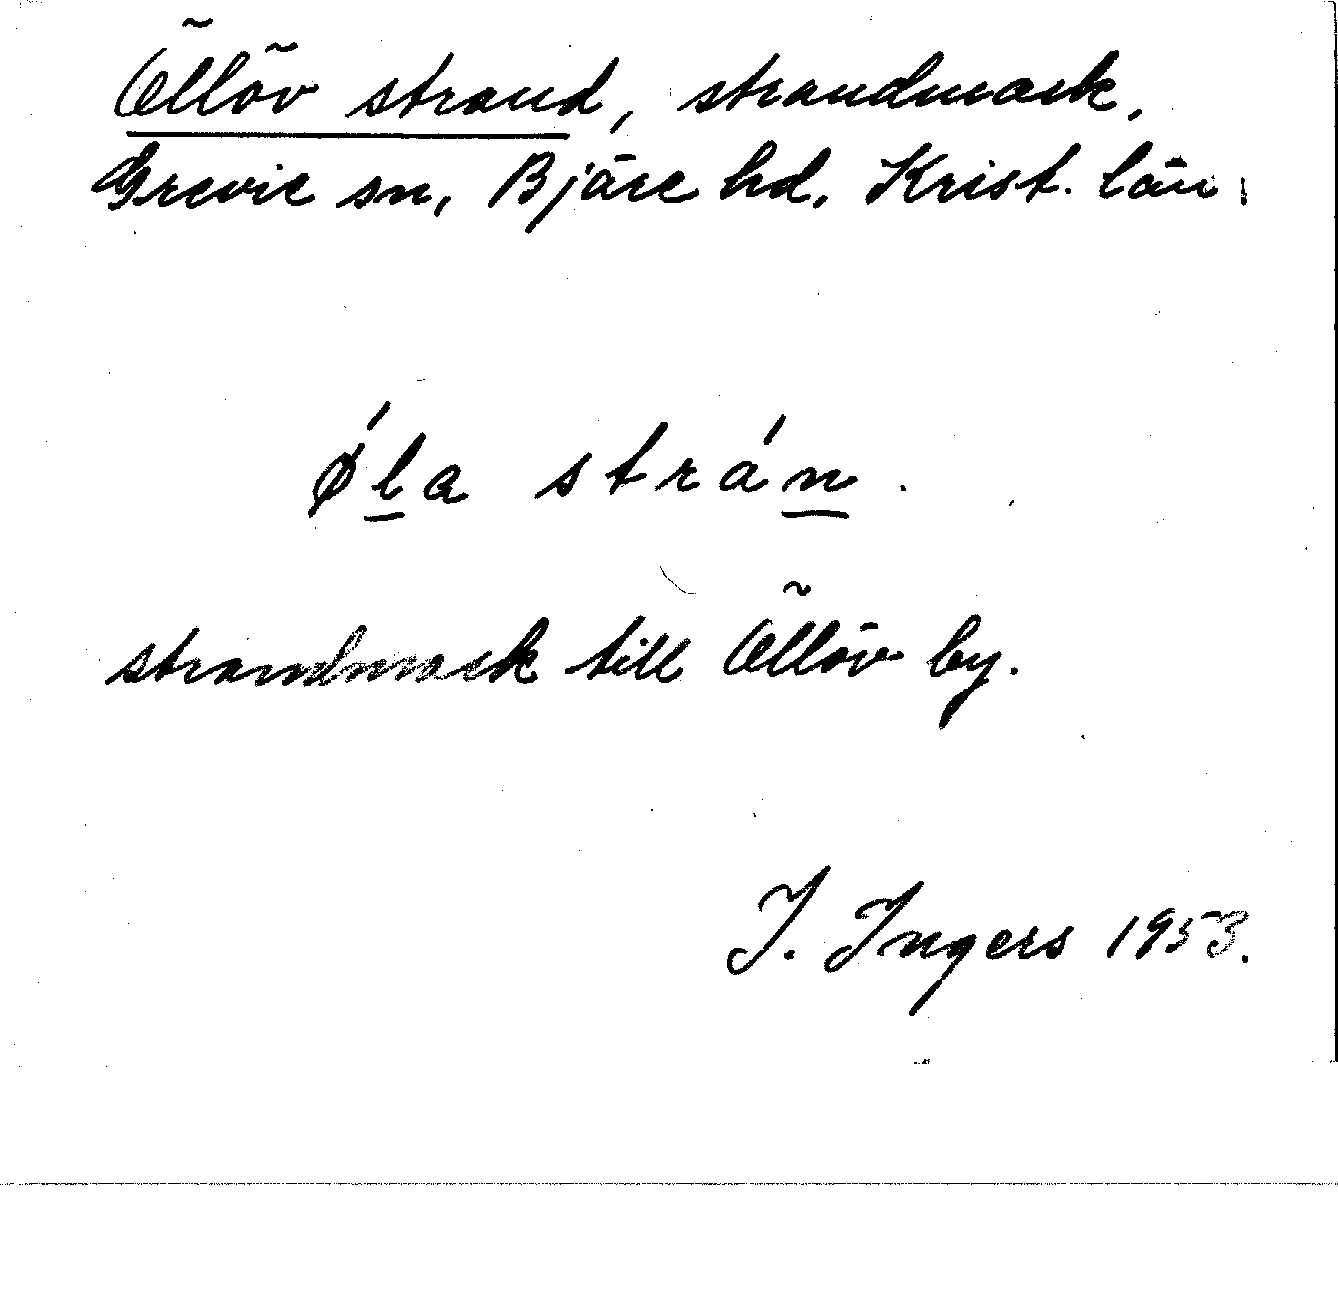 Öllöv strand, strandmark,
Grevie sn, Bjäre hd. Krist. län.
ǿl̲a strán̲.
strandmark till Öllöv by.
I. Ingers 1953.